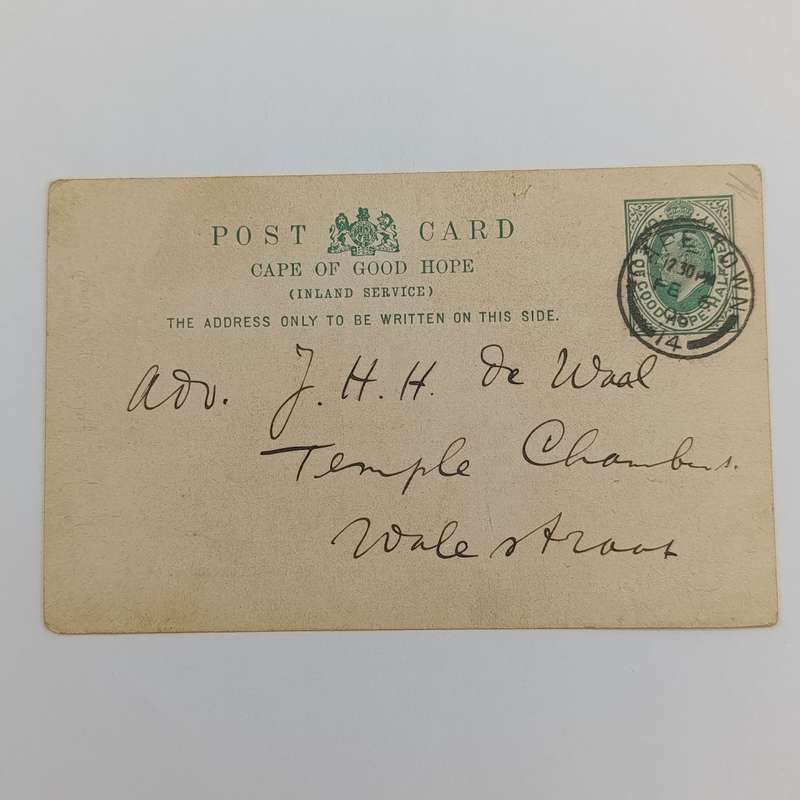 POST CARD
CAPE OF GOOD HOPE
(INLAND SERVICE)
THE ADDRESS ONLY TO BE WRITTEN ON THIS SIDE.
OF GOOD HOPE HALF
12.30 PM
FE
06
14
Adv. J. H. H. de Waal
Temple Chambers.
Wale straat